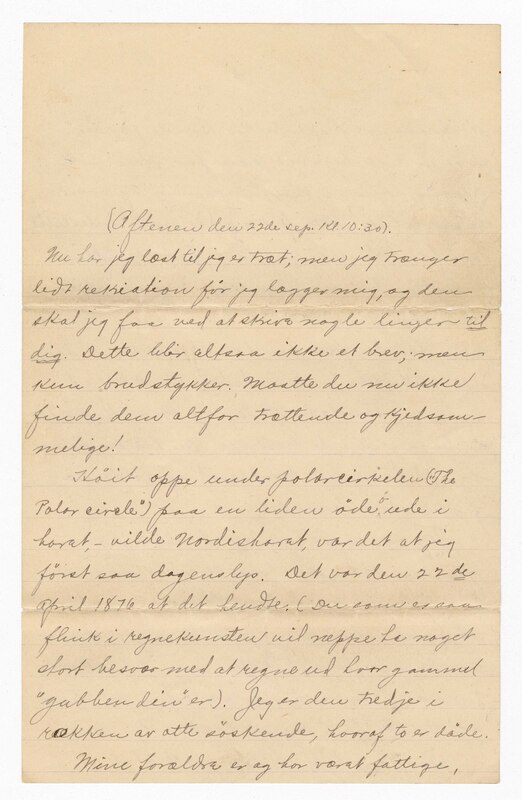 (Aftenen den 22de sep. Kl 10:30).
Nu har jeg læst til jeg er træt; men jeg trænger
lidt rekriation før jeg lægger mig, og den
skal jeg faa ved at skrive nogle linjer til
dig. Dette blir altsaa ikke et brev, men
kun brudstykker. Maatte du nu ikke
finde dem altfor trættende og kjedsom-
melige!
Höit oppe under polarcirkelen ("The
Polar circle") paa en liden öde ö ude i
havet, - vilde Nordishavet, var det at jeg
först saa dagens lys. Det var den 22de
april 1876 at det hendte. (Du som er saa
flink i regnekunsten vil neppe ha noget
stort besvær med at regne ud hvor gammel
"gubben din" er). Jeg er den tredje i
rækken av otte söskende, hvoraf to er döde.
Mine forældre er og har været fattige,